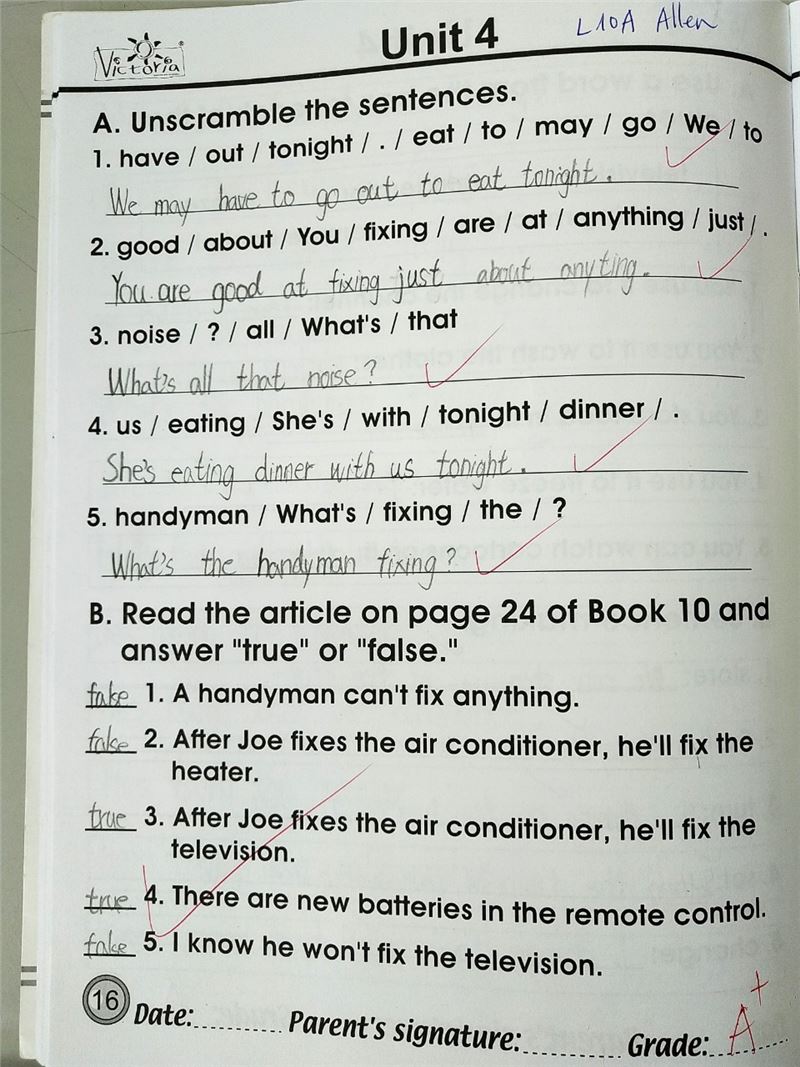 L10A Allen
Victoria
Unit 4
A. Unscramble the sentences.
1. have / out / tonight / . / eat / to / may / go / We / to
We may have to go out to eat tonight.
2. good / about / You / fixing / are / at / anything / just / .
You are good at fixing just about anyting.
3. noise / ? / all / What's / that
What's all that noise?
4. us / eating / She's / with / tonight / dinner / .
She's eating dinner with us tonight.
5. handyman / What's / fixing / the / ?
What's the handyman fixing?
B. Read the article on page 24 of Book 10 and
answer "true" or "false."
false 1. A handyman can't fix anything.
false 2. After Joe fixes the air conditioner, he'll fix the
heater.
true 3. After Joe fixes the air conditioner, he'll fix the
television.
true 4. There are new batteries in the remote control.
false 5. I know he won't fix the television.
16 Date: Parent's signature: Grade: A+